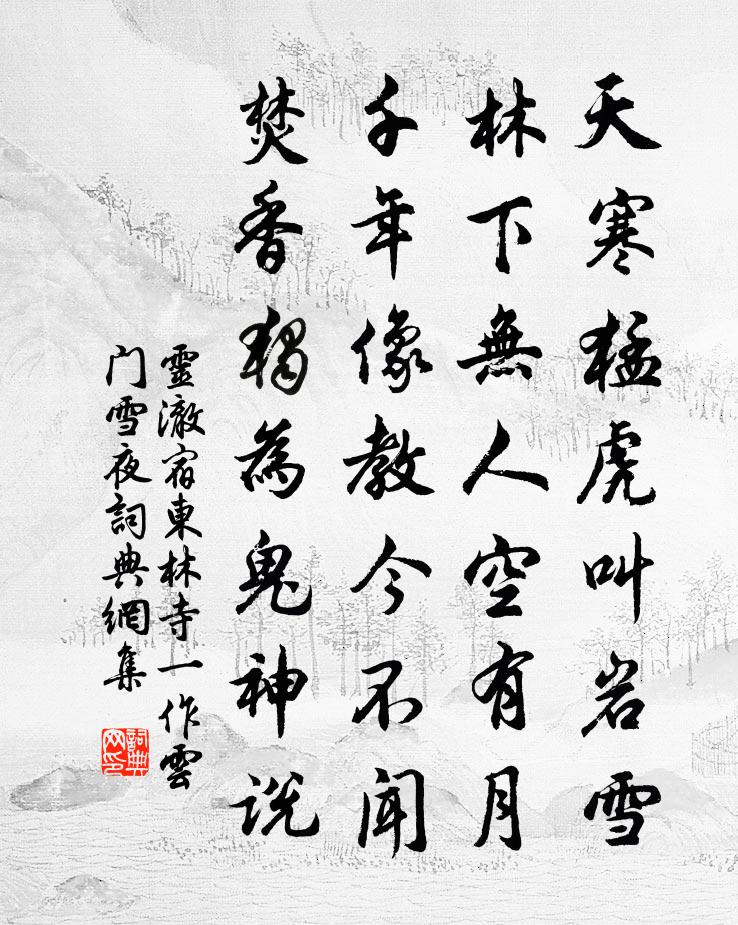 天寒猛虎叫岩雪
林下無人空有月
千年像教今不聞
焚香獨為鬼神說
靈澈宿東林寺一作雲
门雪夜詞典網集
詞典
网印